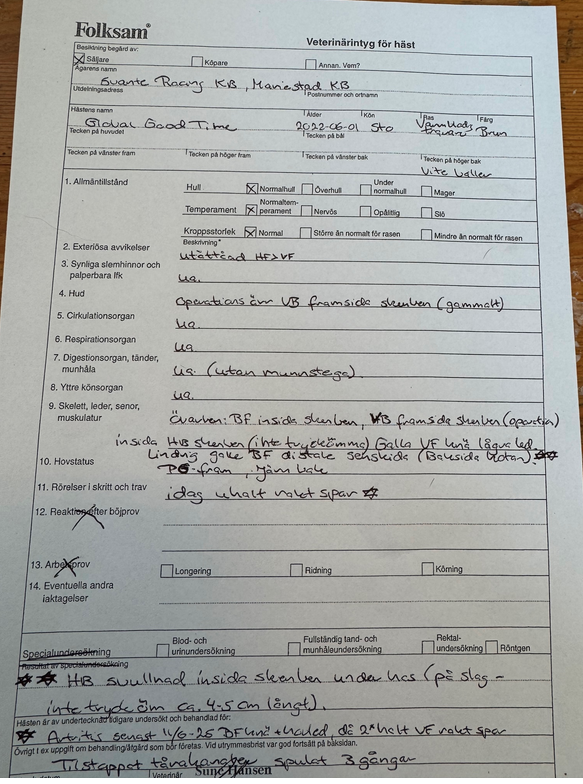 Folksam®
Veterinärintyg för häst
Besiktning begärd av:
Säljare Köpare Annan. Vem?
Ägarens namn
Svante Racing KB, Mariestad KB
Utdelningsadress Postnummer och ortnamn
Hästens namn Ålder Kön Ras Färg
Global Good Time 2022-06-01 Sto Varmblods travare Brun
Tecken på huvudet Tecken på bål
Tecken på vänster fram Tecken på höger fram Tecken på vänster bak Tecken på höger bak
Vite baller
1. Allmäntillstånd Hull Normalhull Överhull Under normalhull Mager
Temperament Normaltemperament Nervös Opålitlig Slö
Kroppsstorlek Normal Större än normalt för rasen Mindre än normalt för rasen
Beskrivning*
2. Exteriösa avvikelser utåttåad HF>VF
3. Synliga slemhinnor och palperbara lfk ua.
4. Hud operationsärr VB framsida skenben (gammalt)
5. Cirkulationsorgan ua.
6. Respirationsorgan ua
7. Digestionsorgan, tänder, munhåla ua. (utan munnstega)
8. Yttre könsorgan ua.
9. Skelett, leder, senor, muskulatur Överben: BF insida skenben, VB framsida skenben (operation)
insida HB skenben (inte tryckömma) Galla VF knä lägre led.
Lindrig galle BF distale senskida (Baksida kotan).
10. Hovstatus fram, Järn bak
11. Rörelser i skritt och trav idag uhalt rakt spår
12. Reaktion efter böjprov
13. Arbetsprov Longering Ridning Körning
14. Eventuella andra iakttagelser
Specialundersökning Blod- och urinundersökning Fullständig tand- och munhåleundersökning Rektal-undersökning Röntgen
Resultat av specialundersökning
HB svullnad insida skenben under has (på slag -
inte tryck öm ca. 4-5 cm långt).
Hästen är av undertecknad tidigare undersökt och behandlad för:
Artritis senast 11/6-25 DF knä + hovled, då 2° halt VF rakt spår
Övrigt t ex uppgift om behandling/åtgärd som bör företas. Vid utrymmesbrist var god fortsätt på baksidan.
Tilstoppet tårekanaler spulat 3 gångar
Veterinär
Sune Hansen